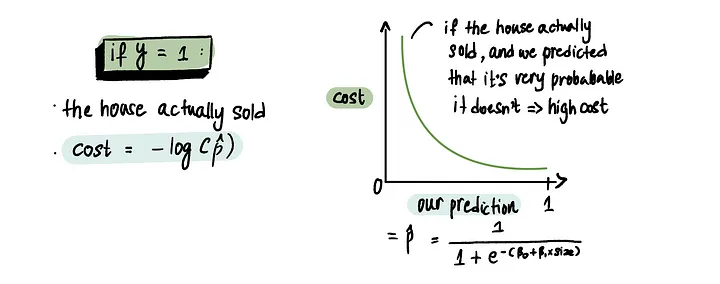 if y = 1 :
· the house actually sold
· cost = - log (p̂)
if the house actually
sold, and we predicted
that it's very probabable
it doesn't => high cost
cost
0
our prediction 1
= p̂ = 1 / 1 + e^-(β₀+β₁×size)